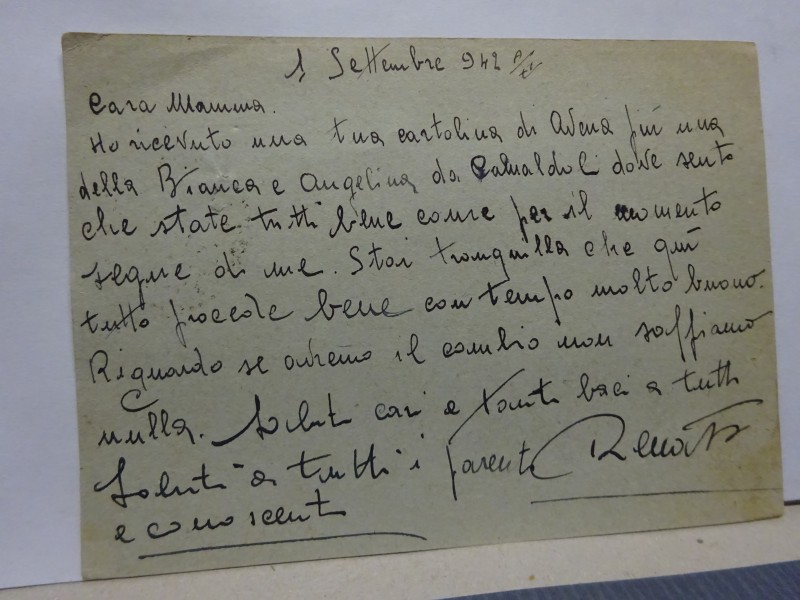 1 Settembre 942
Cara Mamma.
Ho ricevuto una tua cartolina di Avena più una
della Bianca e Angelina da Camaldoli dove sento
che state tutti bene come per il momento
segue di me. Stai tranquilla che qui
tutto procede bene con tempo molto buono.
Riguardo se avremo il cambio non sappiamo
nulla. Saluti cari e tanti baci a tutti
Saluti a tutti i parenti Renato
e conoscenti